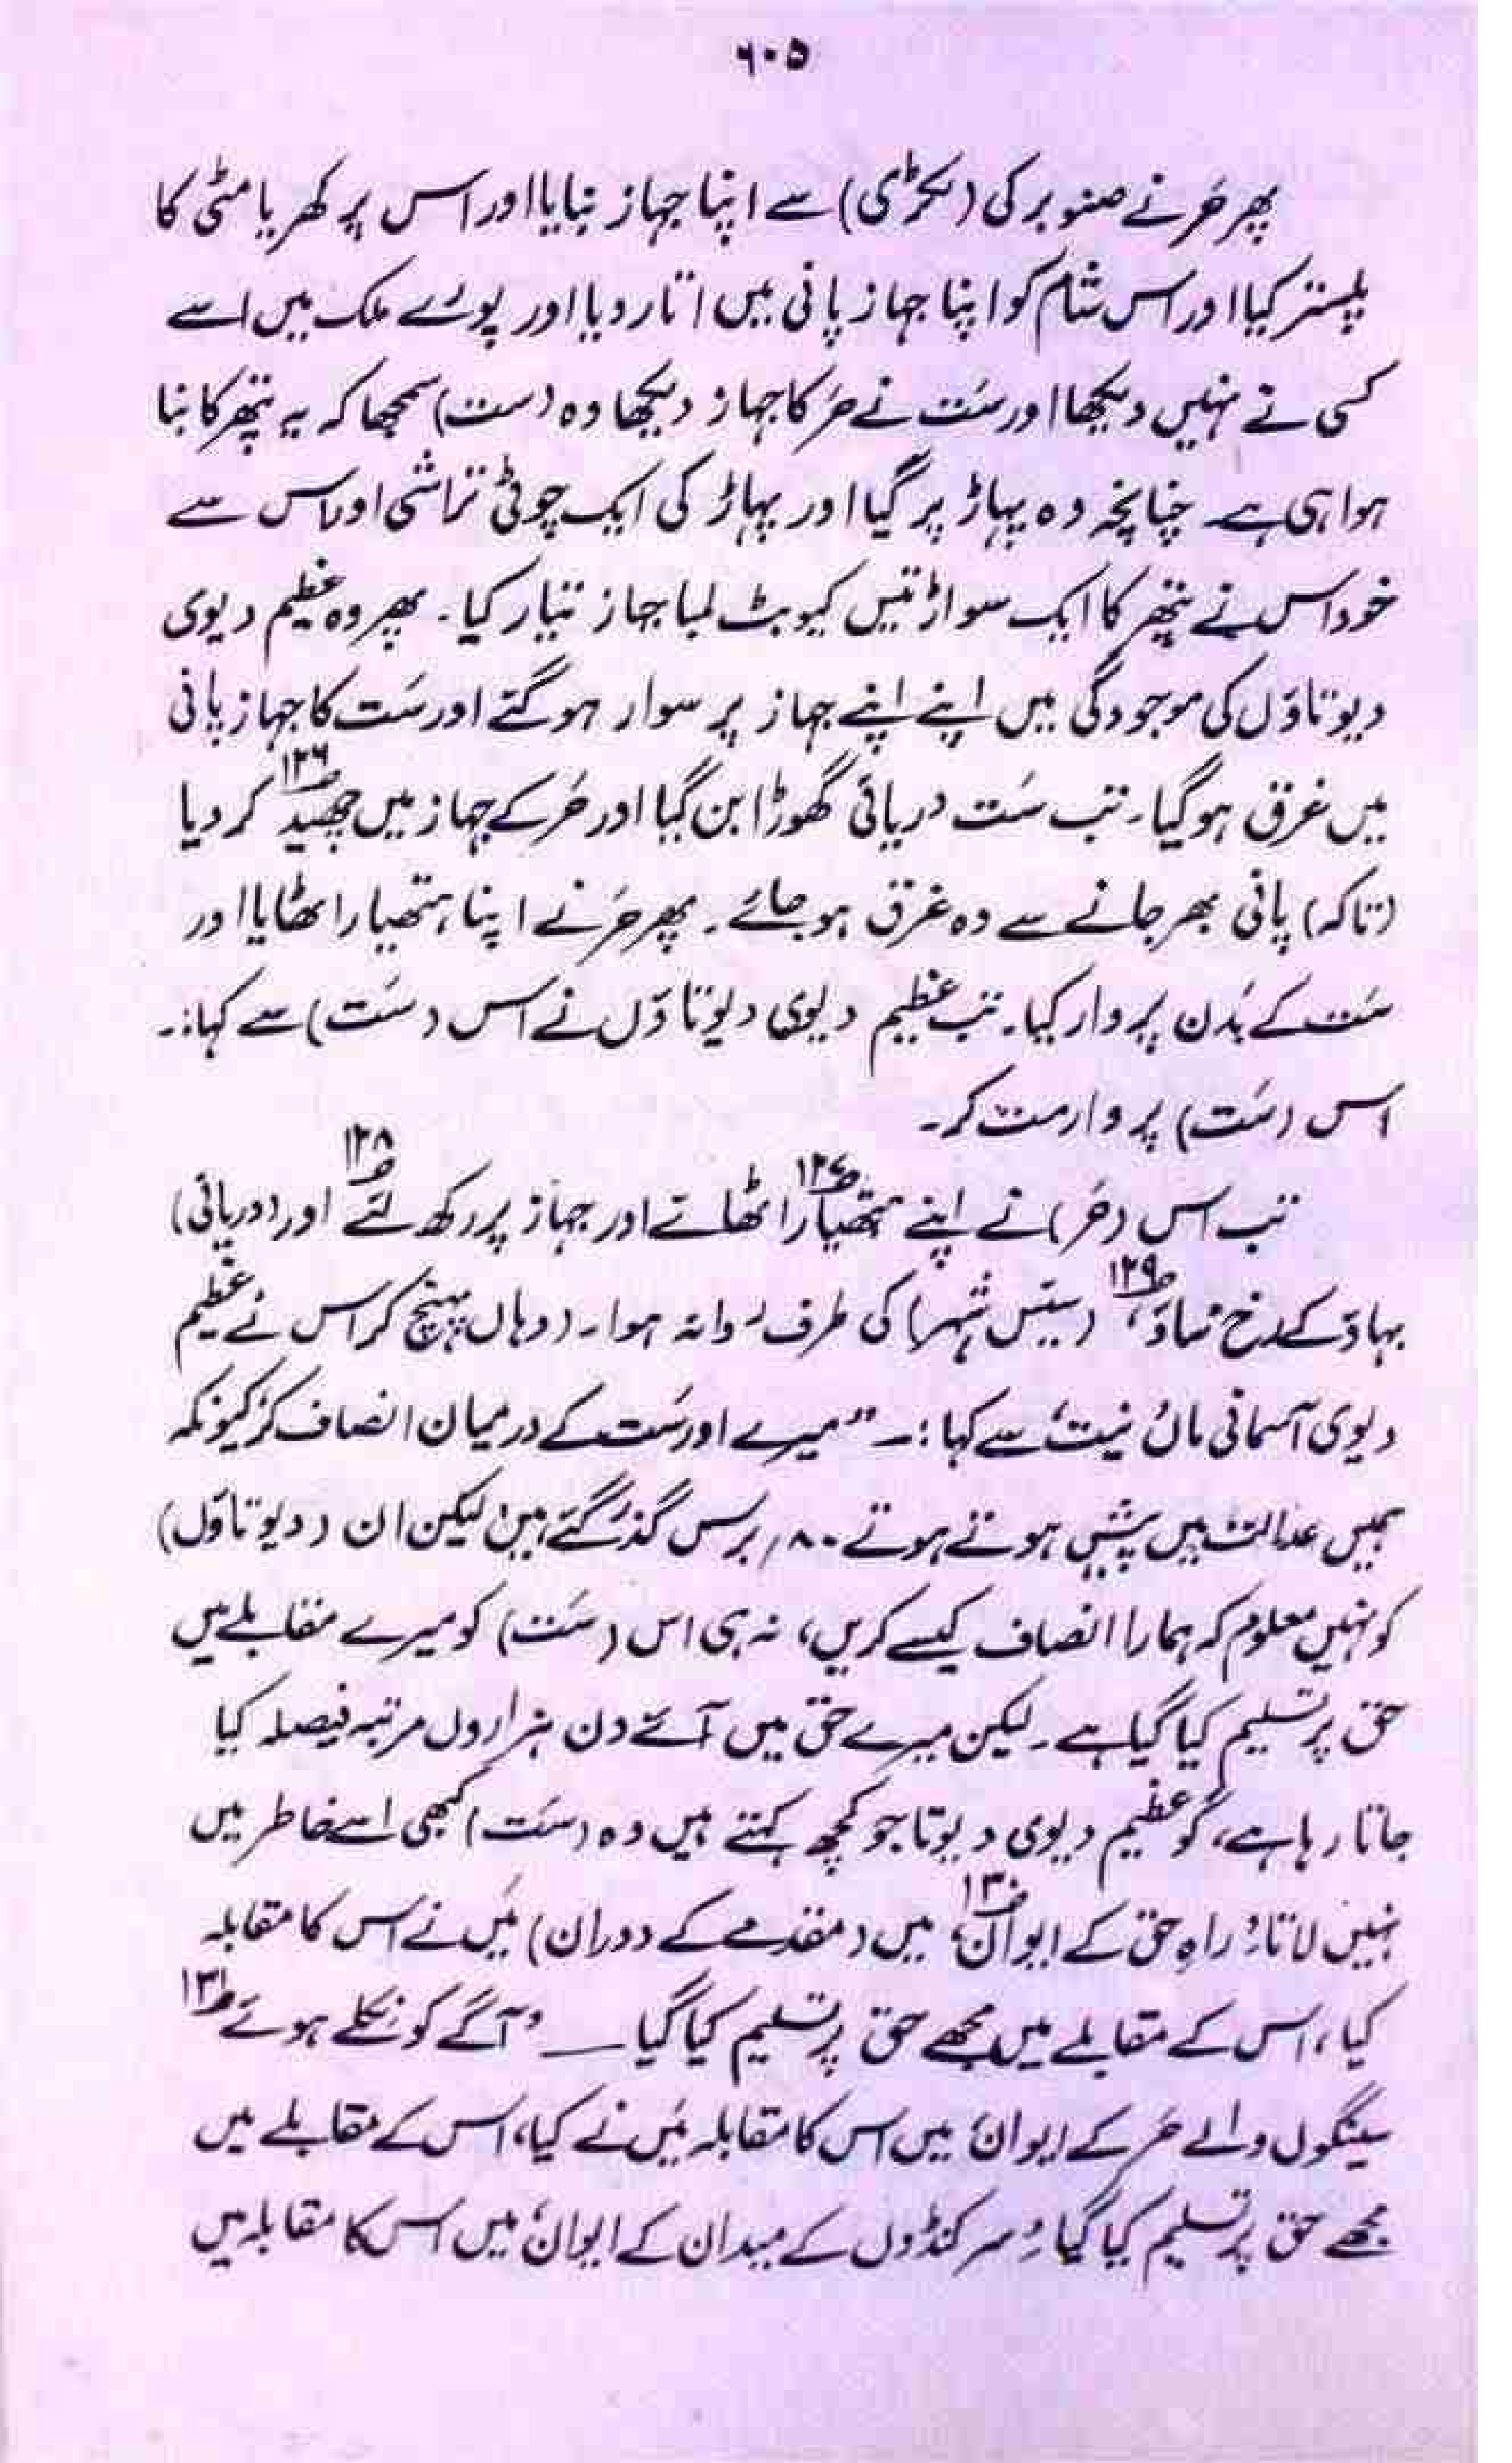 ۶۰۵
پھر حَر نے صنوبر کی (لکڑی) سے اپنا جہاز بنایا اور اس پر کھریا مٹی کا
پلستر کیا اور اس شام کو اپنا جہاز پانی میں اتار دیا اور پورے ملک میں اسے
کسی نے نہیں دیکھا اور سَت نے حَر کا جہاز دیکھا وہ (ست) سمجھا کہ یہ پتھر کا بنا
ہوا ہی ہے۔ چنانچہ وہ پہاڑ پر گیا اور پہاڑ کی ایک چوٹی تراشی اور اس سے
خود اس نے پتھر کا ایک سو اڑتیس کیوبٹ لمبا جہاز تیار کیا۔ پھر وہ عظیم دیوی
دیوتاؤں کی موجودگی میں اپنے اپنے جہاز پر سوار ہوگئے اور سَت کا جہاز پانی
میں غرق ہوگیا۔ تب سَت دریائی گھوڑا بن گیا اور حَر کے جہاز میں چھید۱۲۶ کر دیا
(تاکہ) پانی بھر جانے سے وہ غرق ہو جائے۔ پھر حَر نے اپنا ہتھیار اٹھایا اور
سَت کے بدن پر وار کیا۔ تب عظیم دیوی دیوتاؤں نے اس (سَت) سے کہا:۔
اس (سَت) پر وار مت کر۔
تب اس (حَر) نے اپنے ہتھیار۱۲۷ اٹھائے اور جہاز پر رکھ لئے۱۲۸ اور (دریائی)
بہاؤ کے رخ ’ساؤ‘۱۲۹ (سیّس شہر) کی طرف روانہ ہوا۔ (وہاں پہنچ کر اس نے عظیم
دیوی آسمانی ماں ’نیت‘ سے کہا:۔ ”میرے اور سَت کے درمیان انصاف کر کیونکہ
ہمیں عدالت میں پیش ہوتے ہوتے ۸۰/ برس گذر گئے ہیں لیکن ان (دیوتاؤں)
کو نہیں معلوم کہ ہمارا انصاف کیسے کریں، نہ ہی اس (سَت) کو میرے مقابلے میں
حق پر تسلیم کیا گیا ہے۔ لیکن میرے حق میں آئے دن ہزاروں مرتبہ فیصلہ کیا
جاتا رہا ہے، گو عظیم دیوی دیوتا جو کچھ کہتے ہیں وہ (سَت) کبھی اسے خاطر میں
نہیں لاتا۔ ’راہِ حق کے ایوان‘۱۳۰ میں (مقدمے کے دوران) مَیں نے اس کا مقابلہ
کیا، اس کے مقابلے میں مجھے حق پر تسلیم کیا گیا ــــ ’آگے کو نکلے ہوئے۱۳۱
سینگوں والے حَر کے ایوان‘ میں اس کا مقابلہ مَیں نے کیا، اس کے مقابلے میں
مجھے حق پر تسلیم کیا گیا ’سرکنڈوں کے میدان کے ایوان‘ میں اس کا مقابلہ میں